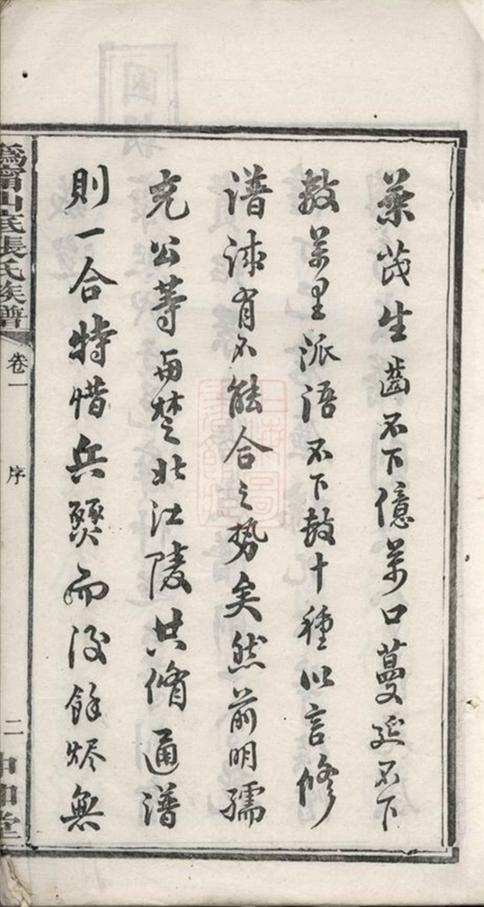 葉茂生齒不下億萬口蔓延不下
数萬里派語不下数十種以言修
譜洵有不能合之勢矣然前明孺
克公等與楚北江陵共脩通譜
則一合特惜兵燹而後餘燼無
爲山底張氏族譜
卷一
序
二